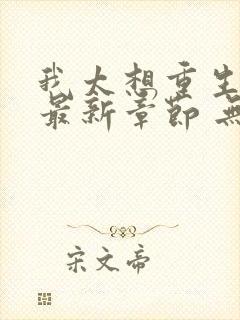 我太想重生
最新章节 无
宋文帝